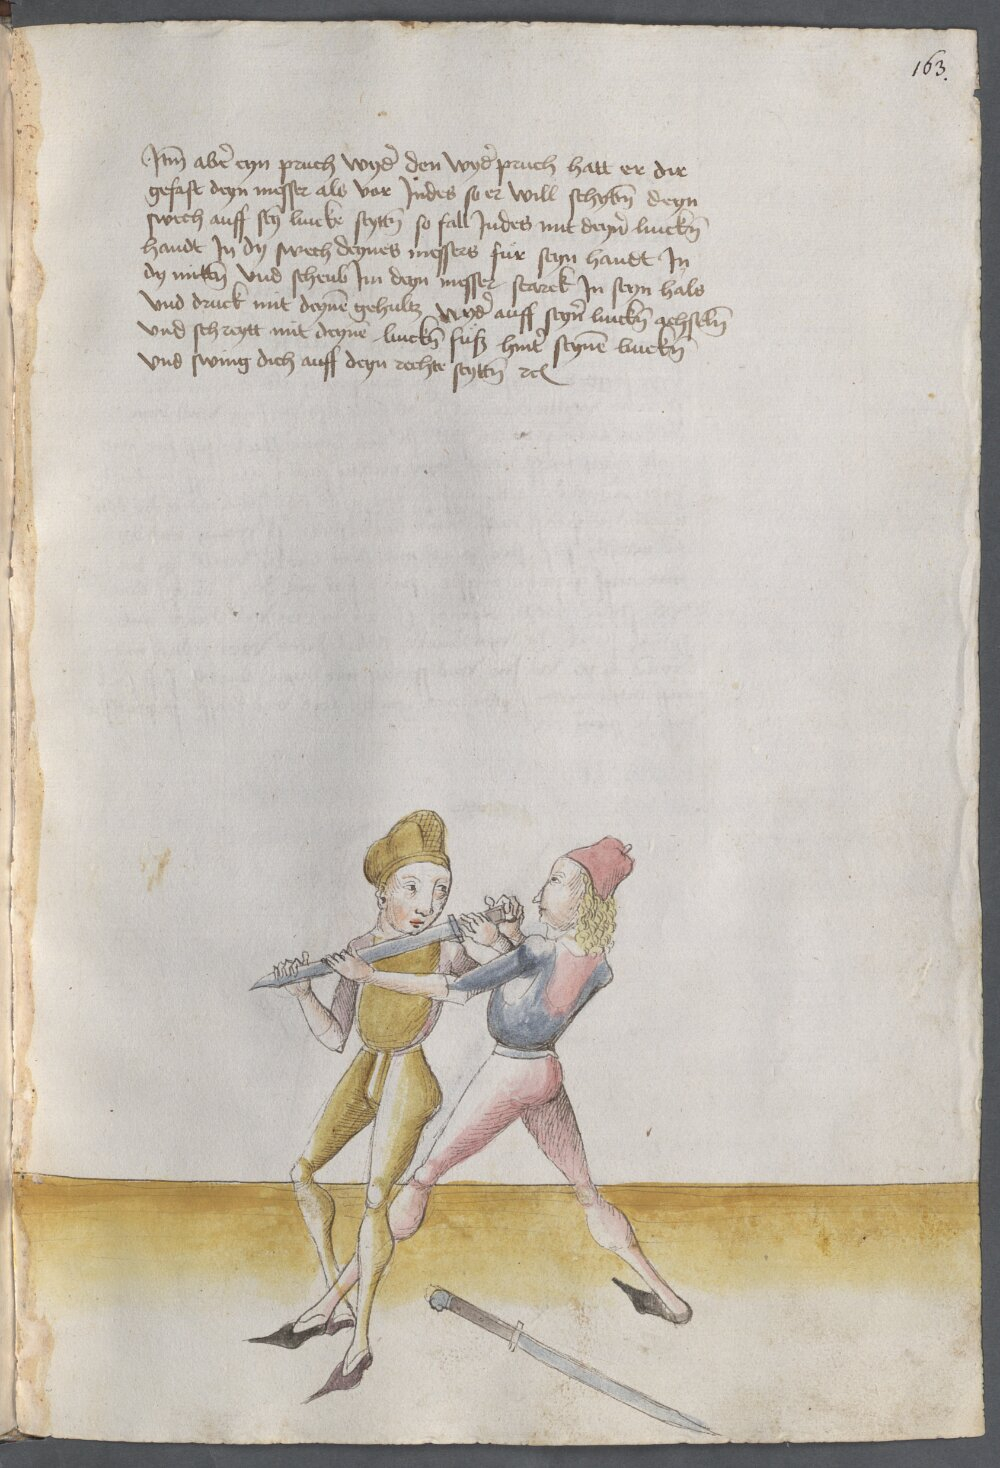 163.
Itm̄ aber eyn pruch wyd' den wyd'pruch hatt er dir
gefast deyn messer als vor Indes so er will schybn̄ deyn
swech auff sey lincke seyttn̄ so fall Indes mit deyn' linckn̄
handt In dy swech deynes messers für seyn handt In
dy mittn̄ und scheub Im deyn messer starck In seyn hals
und druck mit deynē gehultz wyd' auff seyn' linckn̄ achseln̄
und schreytt mit deynē linckn̄ fuß hint' seynē linckn̄
und swing dich auff deyn rechte seyttn̄ rc